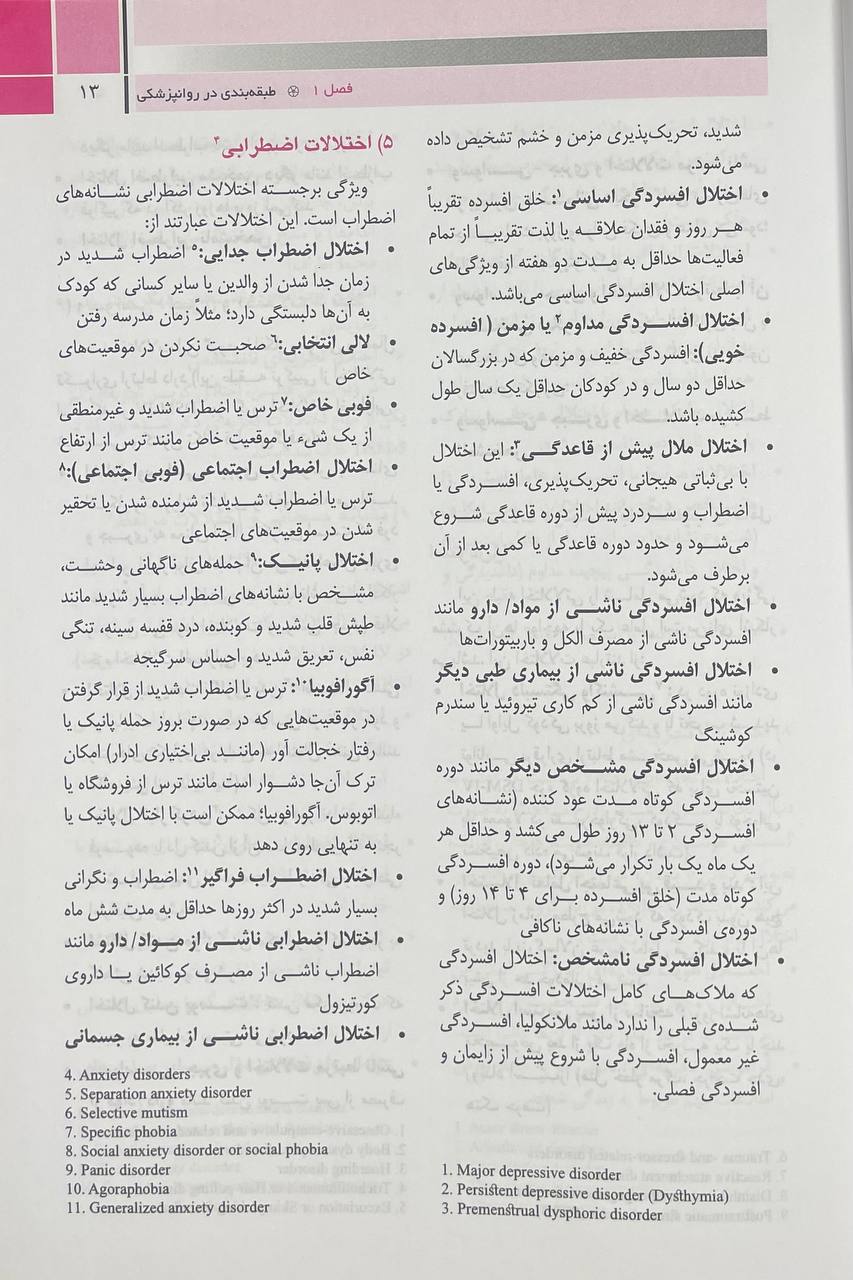 ۱۳
فصل ۱ ֎ طبقه‌بندی در روانپزشکی
شدید، تحریک‌پذیری مزمن و خشم تشخیص داده
می‌شود.
• اختلال افسردگی اساسی۱: خلق افسرده تقریباً
هر روز و فقدان علاقه یا لذت تقریباً از تمام
فعالیت‌ها حداقل به مدت دو هفته از ویژگی‌های
اصلی اختلال افسردگی اساسی می‌باشد.
• اختلال افسردگی مداوم۲ یا مزمن ( افسرده
خویی): افسردگی خفیف و مزمن که در بزرگسالان
حداقل دو سال و در کودکان حداقل یک سال طول
کشیده باشد.
• اختلال ملال پیش از قاعدگی۳: این اختلال
با بی‌ثباتی هیجانی، تحریک‌پذیری، افسردگی یا
اضطراب و سردرد پیش از دوره قاعدگی شروع
می‌شود و حدود دوره قاعدگی یا کمی بعد از آن
برطرف می‌شود.
• اختلال افسردگی ناشی از مواد/ دارو مانند
افسردگی ناشی از مصرف الکل و باربیتورات‌ها
• اختلال افسردگی ناشی از بیماری طبی دیگر
مانند افسردگی ناشی از کم کاری تیروئید یا سندرم
کوشینگ
• اختلال افسردگی مشخص دیگر مانند دوره
افسردگی کوتاه مدت عود کننده (نشانه‌های
افسردگی ۲ تا ۱۳ روز طول می‌کشد و حداقل هر
یک ماه یک بار تکرار می‌شود)، دوره افسردگی
کوتاه مدت (خلق افسرده برای ۴ تا ۱۴ روز) و
دوره‌ی افسردگی با نشانه‌های ناکافی
• اختلال افسردگی نامشخص: اختلال افسردگی
که ملاک‌های کامل اختلالات افسردگی ذکر
شده‌ی قبلی را ندارد مانند ملانکولیا، افسردگی
غیر معمول، افسردگی با شروع پیش از زایمان و
افسردگی فصلی.
1. Major depressive disorder
2. Persistent depressive disorder (Dysthymia)
3. Premenstrual dysphoric disorder
۵) اختلالات اضطرابی۴
ویژگی برجسته اختلالات اضطرابی نشانه‌های
اضطراب است. این اختلالات عبارتند از:
• اختلال اضطراب جدایی:۵ اضطراب شدید در
زمان جدا شدن از والدین یا سایر کسانی که کودک
به آن‌ها دلبستگی دارد؛ مثلاً زمان مدرسه رفتن
• لالی انتخابی:۶ صحبت نکردن در موقعیت‌های
خاص
• فوبی خاص:۷ ترس یا اضطراب شدید و غیرمنطقی
از یک شیء یا موقعیت خاص مانند ترس از ارتفاع
• اختلال اضطراب اجتماعی (فوبی اجتماعی):۸
ترس یا اضطراب شدید از شرمنده شدن یا تحقیر
شدن در موقعیت‌های اجتماعی
• اختلال پانیک:۹ حمله‌های ناگهانی وحشت،
مشخص با نشانه‌های اضطراب بسیار شدید مانند
طپش قلب شدید و کوبنده، درد قفسه سینه، تنگی
نفس، تعریق شدید و احساس سرگیجه
• آگورافوبیا۱۰: ترس یا اضطراب شدید از قرار گرفتن
در موقعیت‌هایی که در صورت بروز حمله پانیک یا
رفتار خجالت آور (مانند بی‌اختیاری ادرار) امکان
ترک آن‌جا دشوار است مانند ترس از فروشگاه یا
اتوبوس. آگورافوبیا؛ ممکن است با اختلال پانیک یا
به تنهایی روی دهد
• اختلال اضطراب فراگیر۱۱: اضطراب و نگرانی
بسیار شدید در اکثر روزها حداقل به مدت شش ماه
• اختلال اضطرابی ناشی از مواد/ دارو مانند
اضطراب ناشی از مصرف کوکائین یا داروی
کورتیزول
• اختلال اضطرابی ناشی از بیماری جسمانی
4. Anxiety disorders
5. Separation anxiety disorder
6. Selective mutism
7. Specific phobia
8. Social anxiety disorder or social phobia
9. Panic disorder
10. Agoraphobia
11. Generalized anxiety disorder